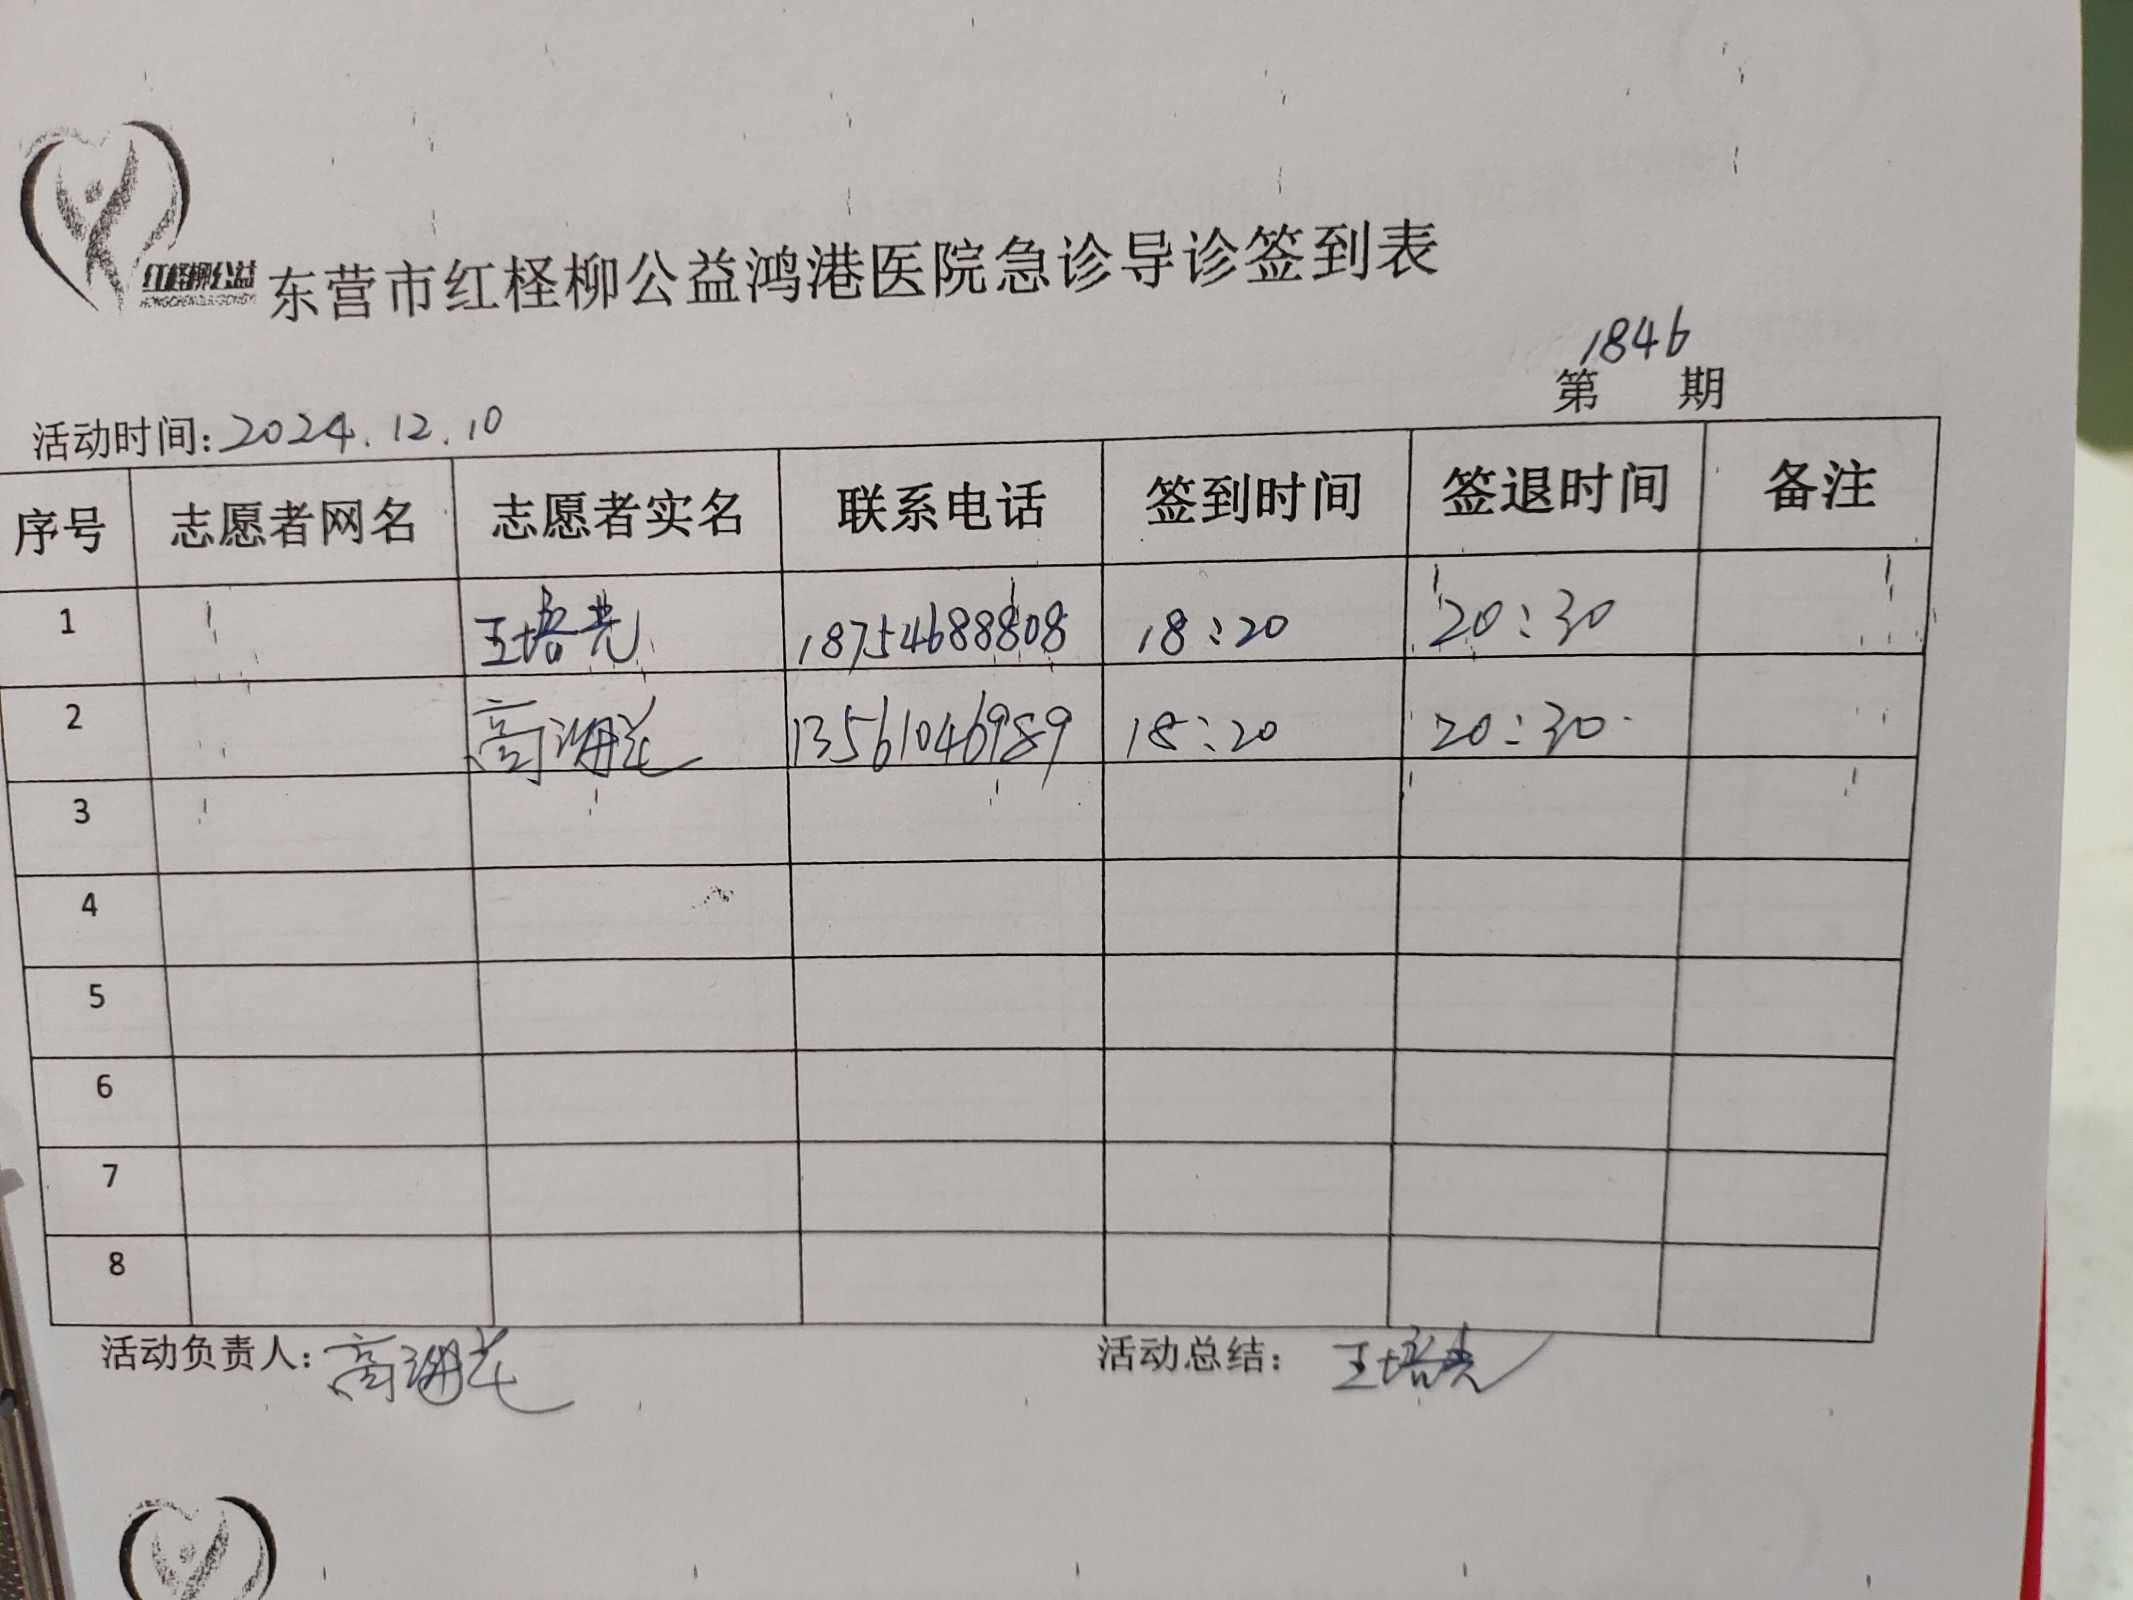 红柽柳公益
HONGCHENGLIU
东营市红柽柳公益鸿港医院急诊导诊签到表
第1846期
活动时间:2024.12.10
序号 志愿者网名 志愿者实名 联系电话 签到时间 签退时间 备注
1 王培尧 18754688808 18:20 20:30
2 高 13561046989 18:20 20:30
3
4
5
6
7
8
活动负责人:高 活动总结: 王培尧